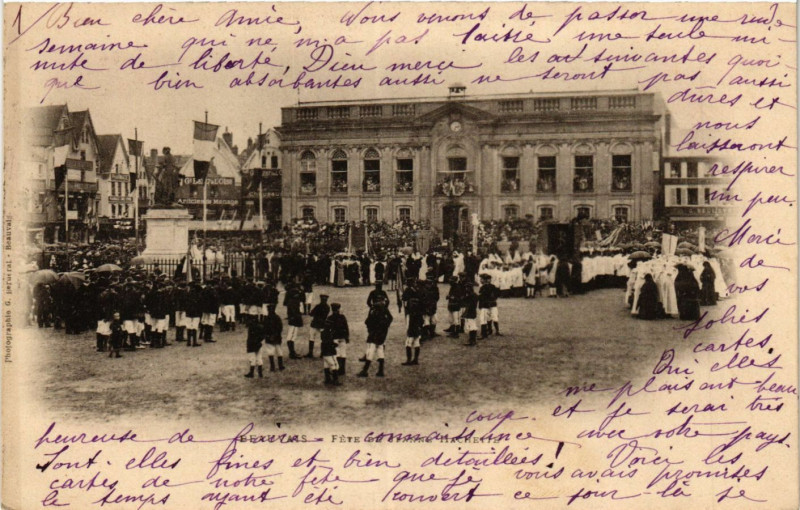 1) Bien chère Amie, Nous venons de passer une rude
semaine qui ne m'a pas laissé une seule mi-
nute de liberté, Dieu merci les autres suivantes quoi-
que bien absorbantes aussi ne seront pas aussi
dures et
nous
laisseront
respirer
un peu.
Merci
de
vos
jolies
cartes.
Oui elles
me plaisent beau
coup et je serai très
heureuse de faire connaissance avec votre pays.
Sont-elles fines et bien détaillées! Voici les
cartes de notre fête que je vous avais promises
le temps ayant été couvert ce jour-là se
BEAUVAIS - FÊTE DE JEANNE HACHETTE
Photographie G. - Beauvais